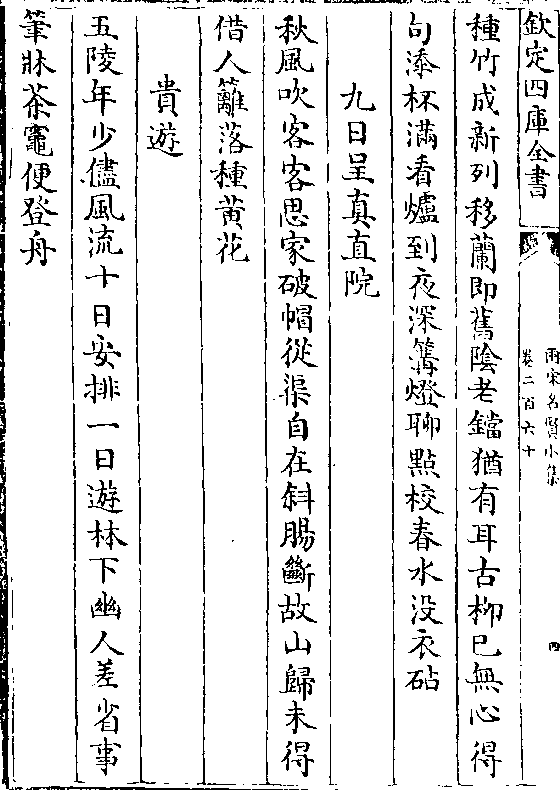 欽定四庫全書
兩宋名賢小集
卷二百六十
四
種竹成新列移蘭即舊陰老鐺猶有耳古柳已無心得
句添杯滿看爐到夜深篝燈聊點校春水没衣砧
九日呈真直院
秋風吹客客思家破帽從渠自在斜腸斷故山歸未得
借人籬落種黄花
貴遊
五陵年少儘風流十日安排一日遊林下幽人差省事
筆牀茶竈便登舟